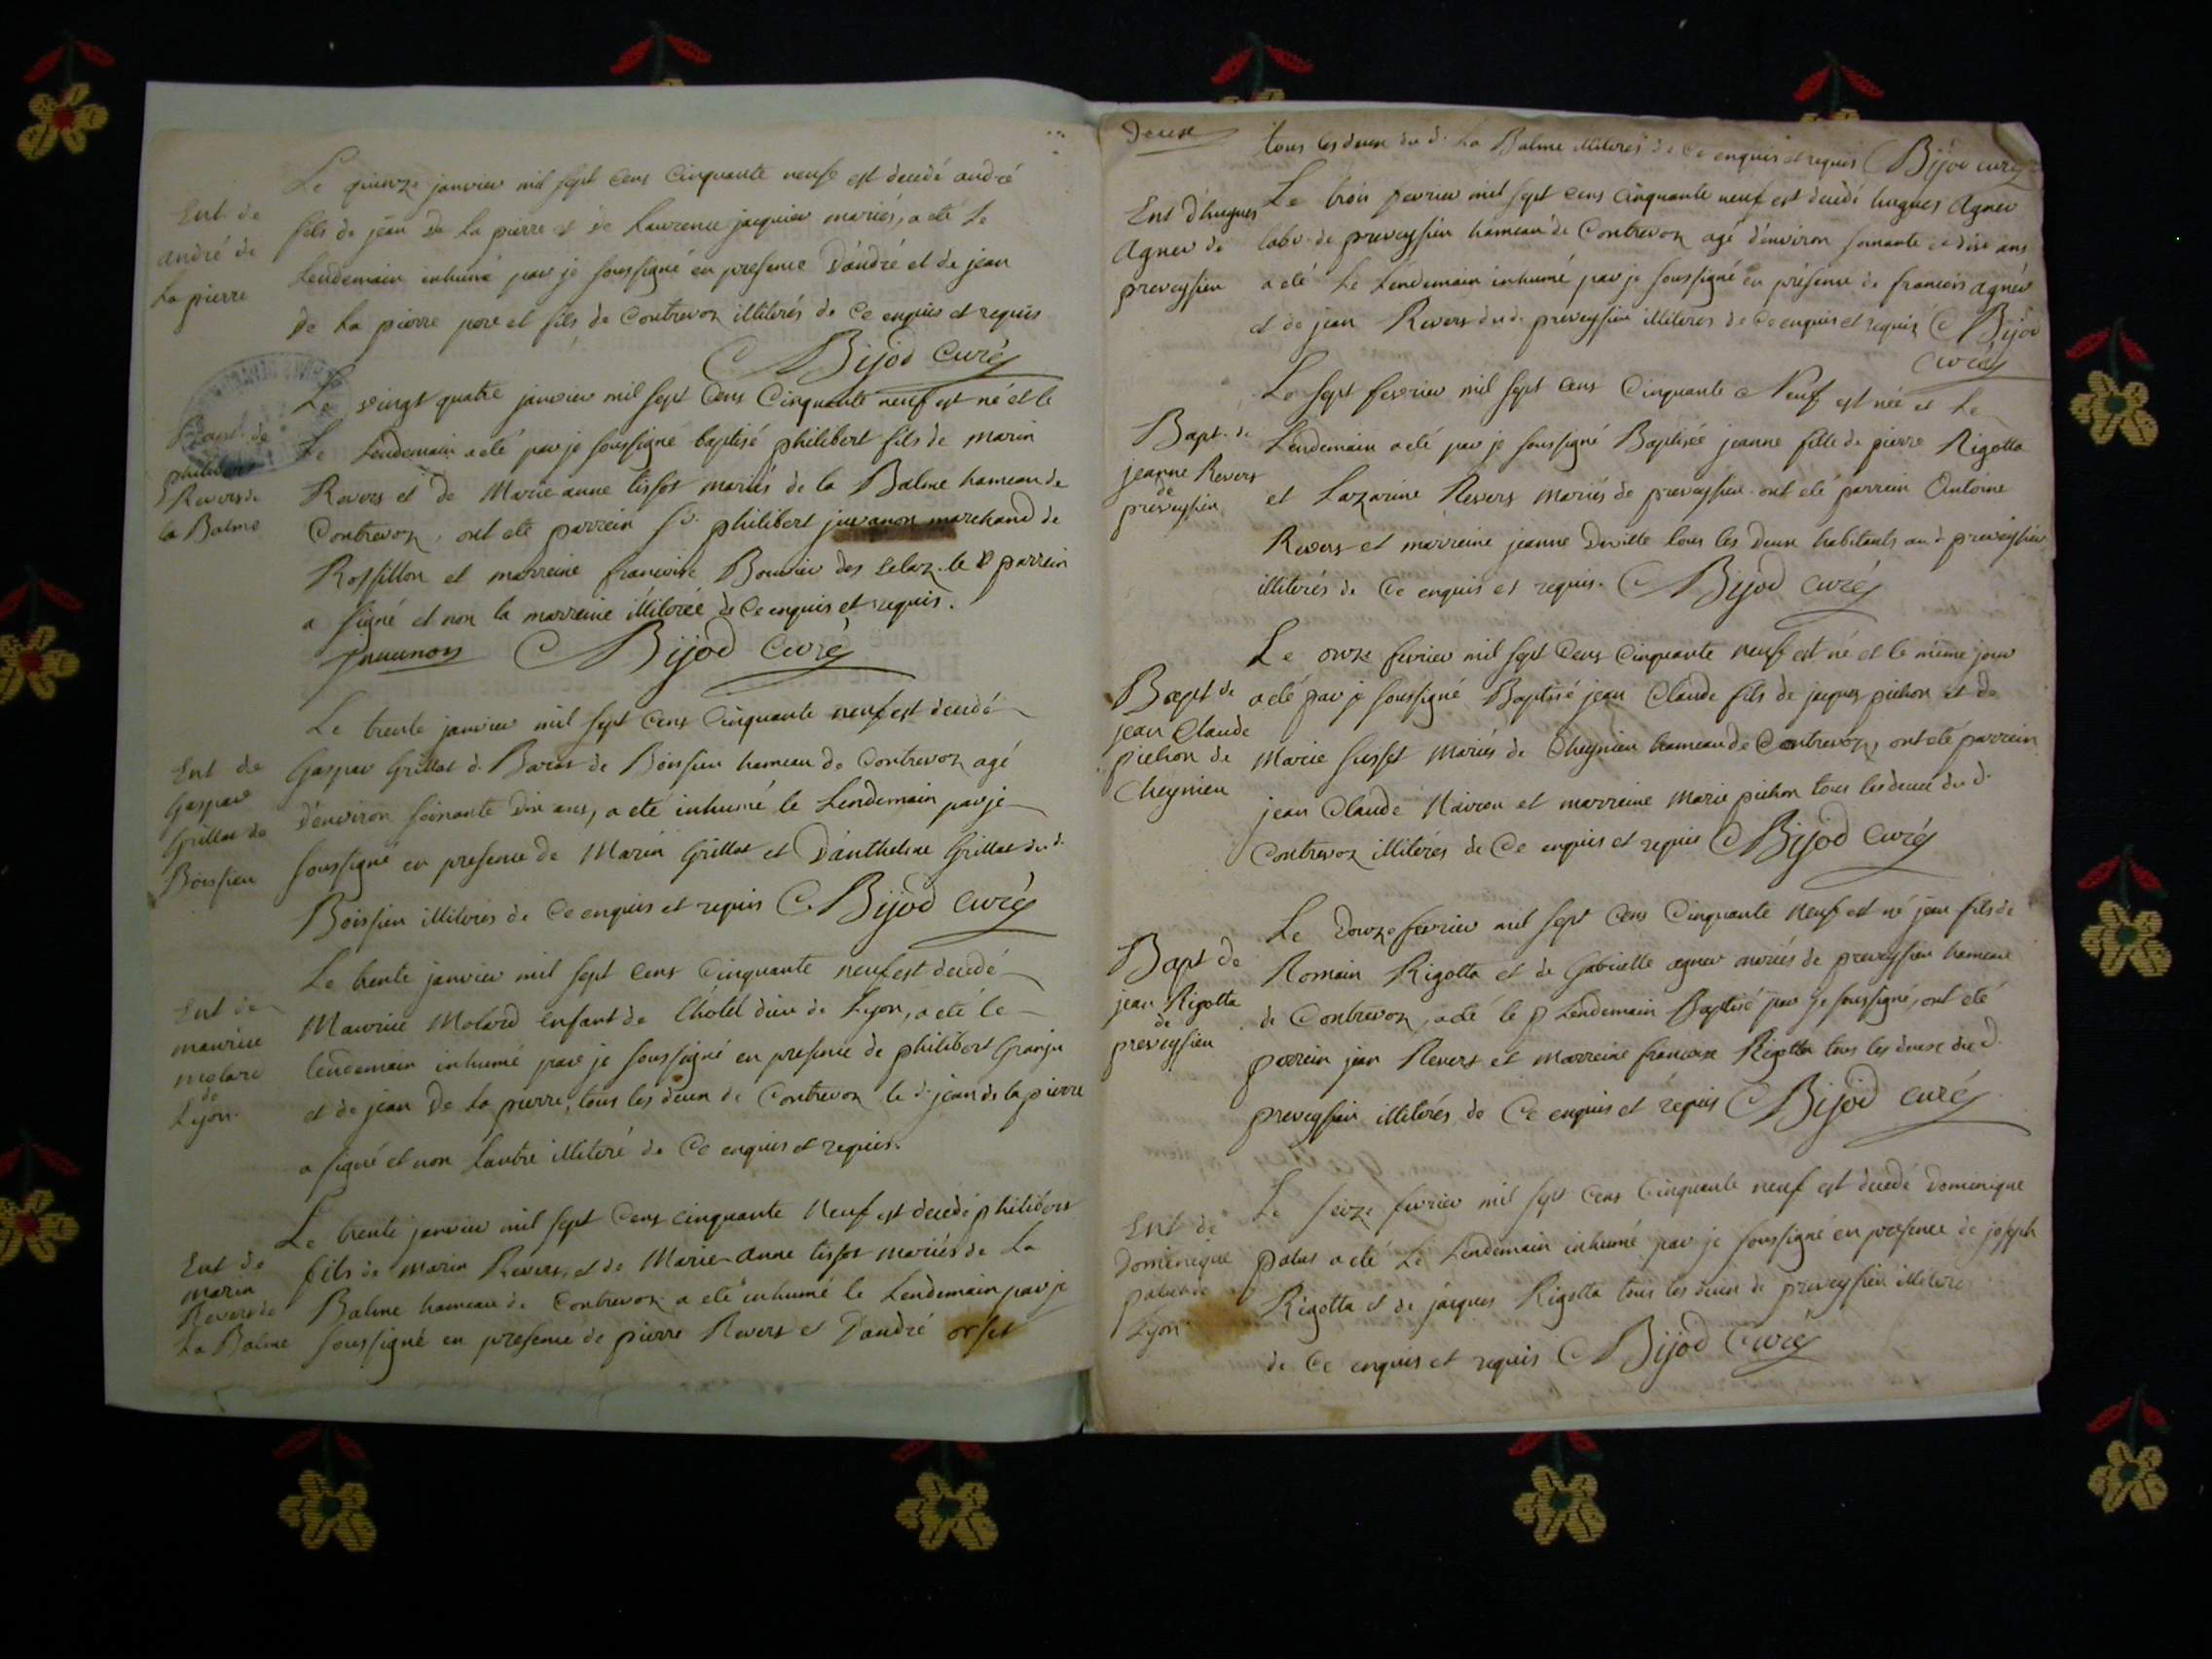 Le quinze janvier mil sept cens Cinquante neufe est decedé andré
Ent. de
andré de
la pierre
fils de jean De La pierre et de Laurence jacquier mariés, a eté Le
Lendemain inhumé par je soussigné en presence D'andré et de jean
De La pierre pere et fils de Contrevoz illiterés de Ce enquis et requis
Bijod Curé
Bapt. de
philibert
Revers de
la Balme
Le vingt quatre janvier mil sept Cens Cinquante neuf est né et le
Le Lendemain a eté par je soussigné baptisé philibert fils de marin
Revers et de Marie anne tissot mariés de la Balme hameau de
Contrevoz, ont eté parrein Sr. philibert juvanon marchand de
Rossillon et marreine francoise Bouvier des Selaz. le d parrein
a signé et non la marreine illiterée de Ce enquis et requis.
Juvanon Bijod Curé
Ent de
Gaspar
Grillat de
Boissieu
Le trente janvier mil sept Cens Cinquante neuf est decedé
Gaspar Grillat d. Barat de Boissieu hameau de Contrevoz agé
D'environ soixante Dix ans, a eté inhumé le Lendemain par je
soussigné en presence de Marin Grillat et D'anthelme Grillat du d.
Boissieu illiterés de Ce enquis et requis Bijod Curé
Ent de
maurice
molard
de
Lyon.
Le trente janvier mil sept Cens Cinquante neuf est decedé
Maurice Molard enfant de L'hotel dieu de Lyon, a eté le
lendemain inhumé par je soussigné en presence de philibert Granju
et de jean De La pierre, tous les deux de Contrevoz le d. jean de la pierre
a signé et non Lautre illiteré de Ce enquis et requis.
Ent de
marin
Revers de
La Balme
Le trente janvier mil sept Cens cinquante Neuf est decedé philibert
fils de marin Revers, et de Marie-anne tissot mariés de La
Balme hameau de Contrevoz a eté inhumé le Lendemain par je
soussigné en presence de pierre Revers et D'andré orset
Deuxe
tous les deux du d. La Balme illiterés de Ce enquis et requis Bijod curé
Ent d'hugues
Agner de
preveyssieu
Le trois fevrier mil sept cens Cinquante neuf est decedé hugues Agner
labr. de preveyssieu hameau de Contrevoz agé d'environ soixante et dix ans
a eté Le Lendemain inhumé par je soussigné en presence de francois agner
et de jean Revers du d. preveyssieu illiterés de Ce enquis et requis Bijod
curé
Bapt. de
jeanne Revers
de
preveyssieu
Le sept fevrier mil sept cens Cinquante Neuf est née et Le
Lendemain a eté par je soussigné Baptisée jeanne fille de pierre Rigotta
et Lazarine Revers mariés de preveyssieu. ont eté parrein Antoine
Revers et marreine jeanne Deville tous les Deux habitants au d. preveyssieu
illiterés de Ce enquis et requis. Bijod Curé
Bapt de
jean Claude
pichon de
Cheynieu
Le onze fevrier mil sept Cens Cinquante neuf est né et le même jour
a eté par je soussigné Baptisé jean Claude fils de jaques pichon et de
Marie susset Mariés de Cheynieu hameau de Contrevoz, ont eté parrein
jean Claude Nairou et marreine Marie pichon tous les deux du d.
Contrevoz illiterés de Ce enquis et requis Bijod Curé
Bapt de
jean Rigotta
de
preveyssieu
Le Douze fevrier mil sept Cens Cinquante Neuf est né jean fils de
Romain Rigotta et de Gabrielle agner mariés de preveyssieu hameau
de Contrevoz, a eté le Lendemain Baptisé par je soussigné, ont eté
parrein jean Revers et Marreine francoise Rigotta tous les deux du d.
preveyssieu illiterés de Ce enquis et requis Bijod curé
Ent de
Dominique
palus de
Lyon.
Le seize fevrier mil sept Cens Cinquante neuf est decedé Dominique
palus a eté Le Lendemain inhumé par je soussigné en presence de joseph
Rigotta et de jacques Rigotta tous les deux de preveyssieu illiterés
de Ce enquis et requis Bijod Curé